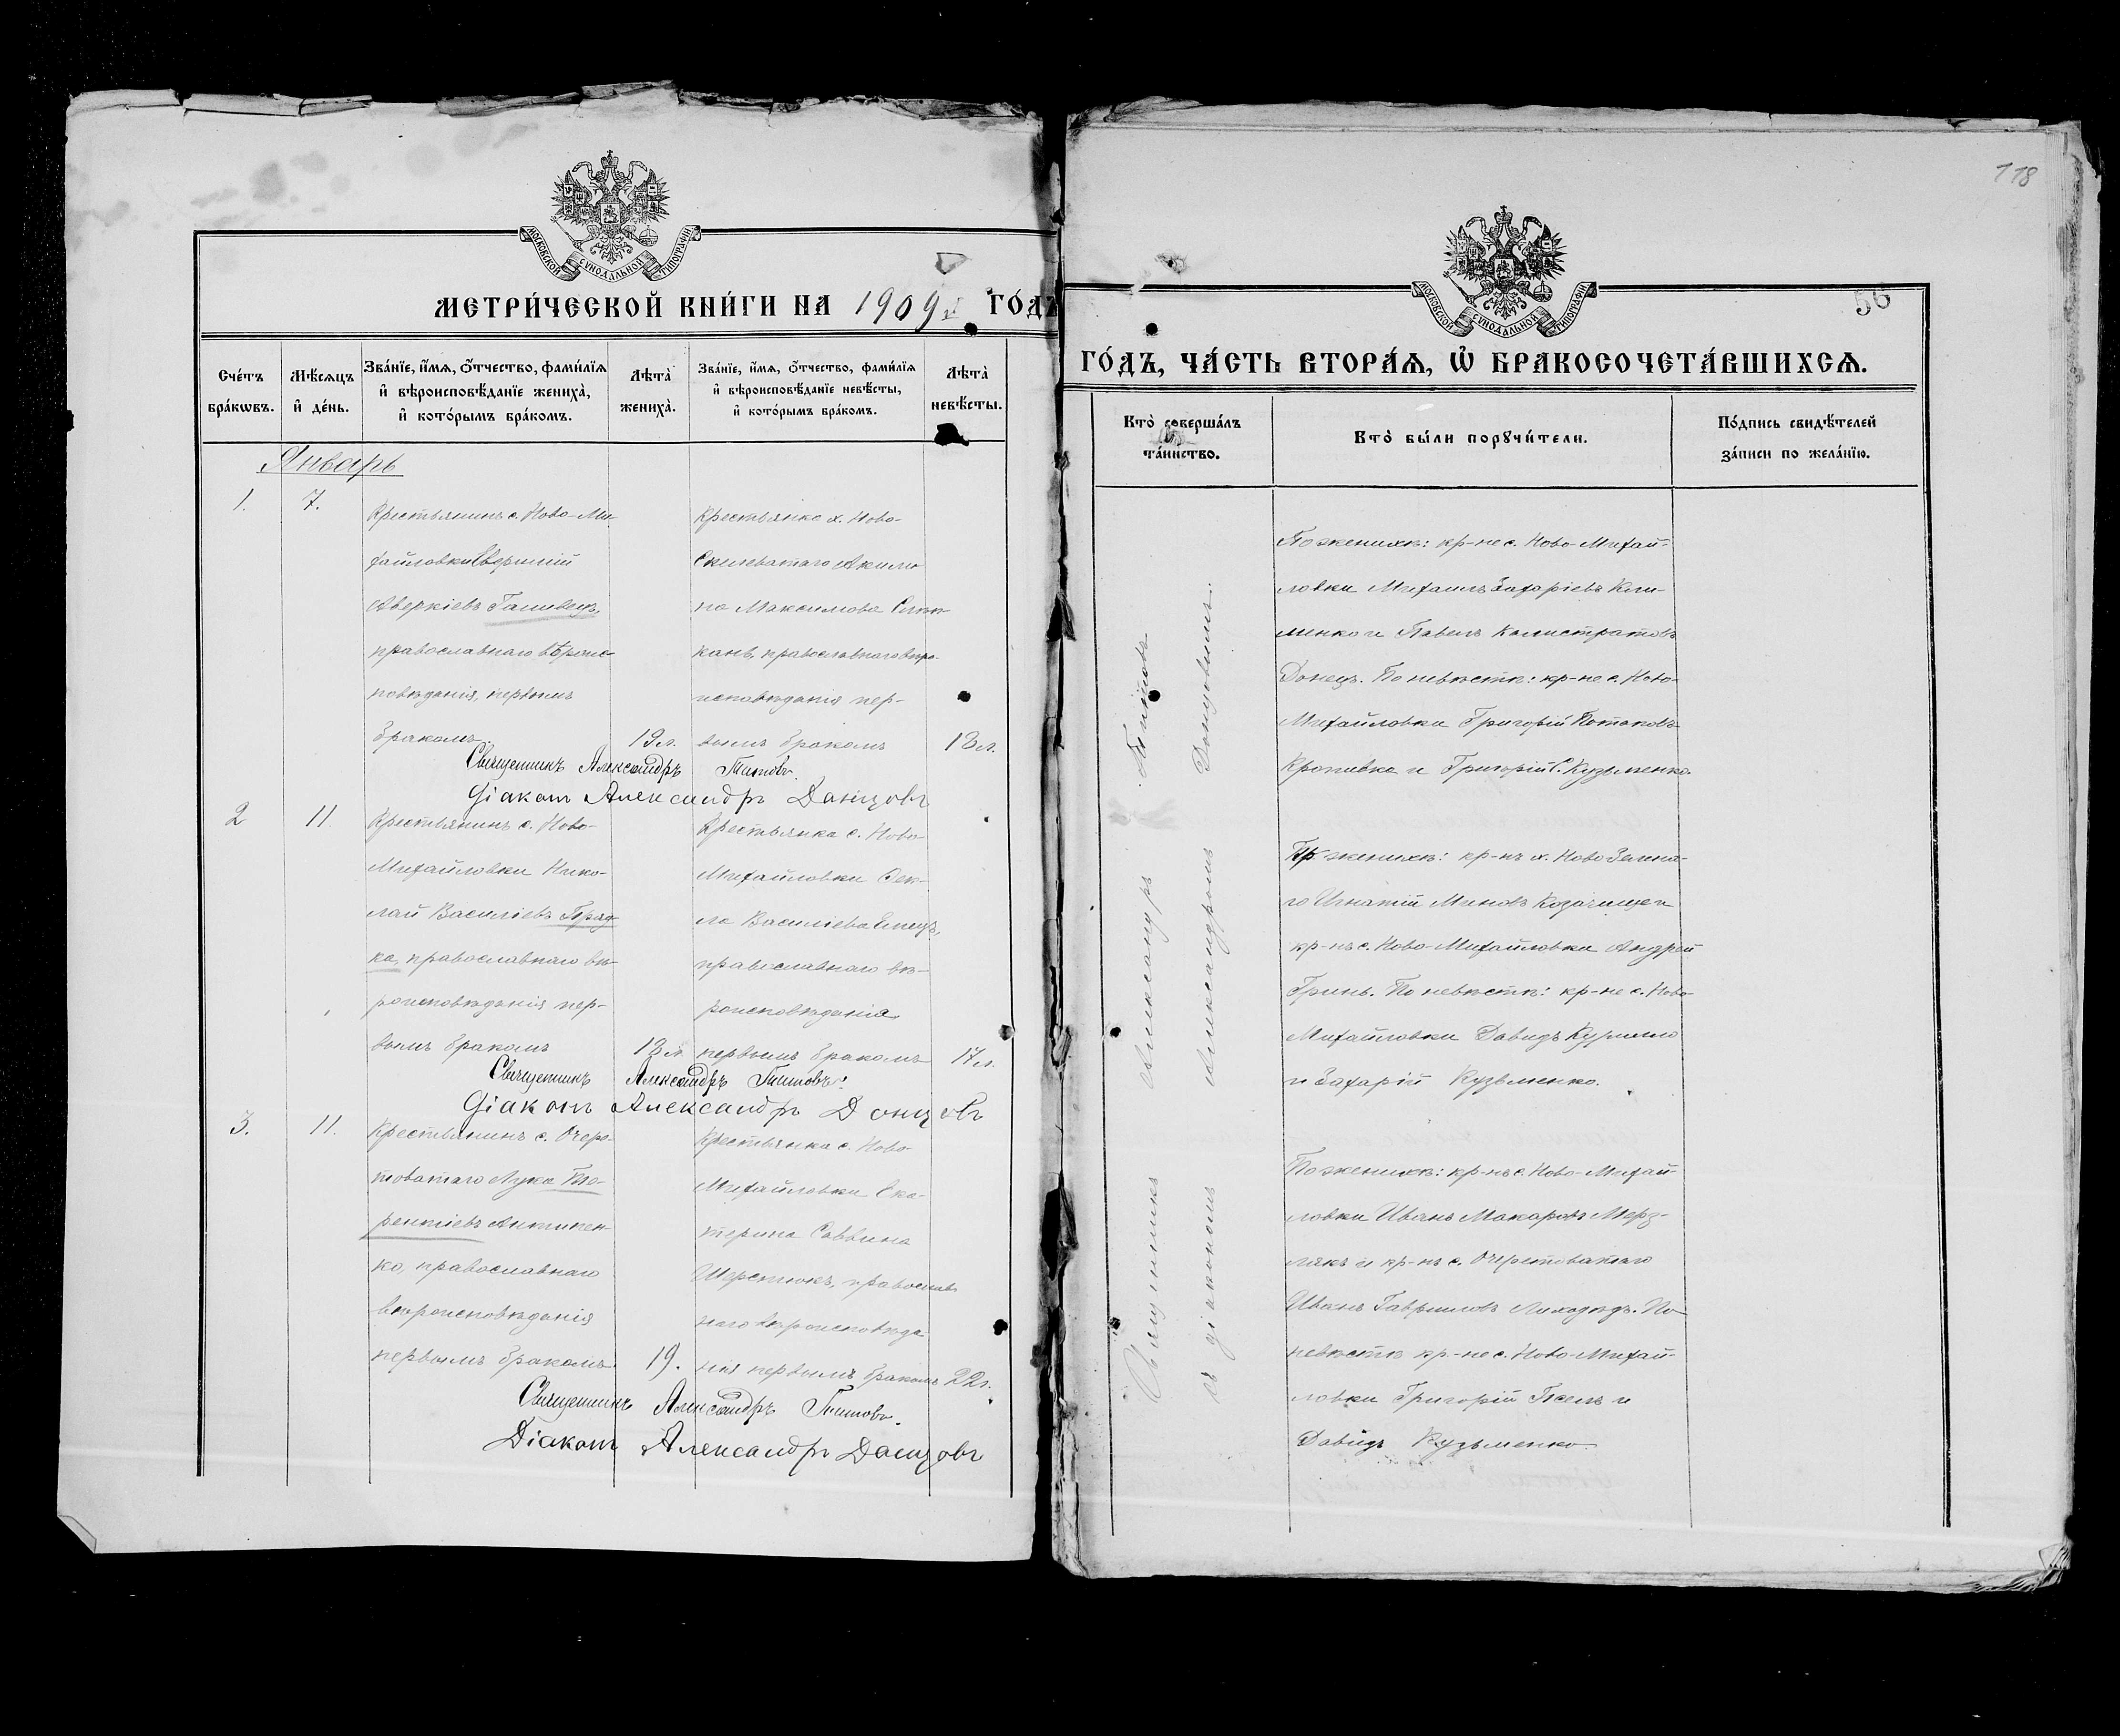 МОСКОВСКОЙ СѴНОДАЛЬНОЙ ТИПОГРАФІИ
МЕТРИ́ЧЕСКОЙ КНИ́ГИ НА 1909 ГО́ДЪ
Сче́тъ бра́кѡвъ.
Мѣ́сяцъ и҆ де́нь.
Зва́нїе, и҆́мѧ, ѻ҆́тчество, фами́лїѧ
и҆ вѣроисповѣ́данїе жениха̀,
и҆ кото́рымъ бра́комъ.
Лѣта̀ жениха̀.
Зва́нїе, и҆́мѧ, ѻ҆́тчество, фами́лїѧ
и҆ вѣроисповѣ́данїе невѣ́сты,
и҆ кото́рымъ бра́комъ.
Лѣта̀ невѣ́сты.
Январь
1.
7.
Крестьянинъ с. Ново-Ми-
хайловки
Аверкіевъ
православнаго вѣроис-
повѣданія, первымъ
бракомъ.
19 л.
Крестьянка х. Ново-
Максимова
православнаго вѣро-
исповѣданія пер-
вымъ бракомъ
18 л.
Священникъ Александръ Титовъ.
Діаконъ Александръ Донцовъ
2
11
Крестьянинъ с. Ново-
Михайловки Нико-
лай Василіевъ
ка, православнаго вѣ-
роисповѣданія пер-
вымъ бракомъ
18 л.
Крестьянка с. Ново
Михайловки Фек-
ла Василіева
православнаго вѣ-
роисповѣданія
первымъ бракомъ
17 л.
Священникъ Александръ Титовъ.
Діаконъ Александръ Донцовъ
3.
11.
Крестьянинъ с. Очере-
товатаго Лука Те-
рентіевъ Антипен-
ко, православнаго
вѣроисповѣданія
первымъ бракомъ
19.
Крестьянка с. Ново
Михайловки Ека-
терина Саввина
православ
наго вѣроисповѣда
нія первымъ бракомъ
22 г.
Священникъ Александръ Титовъ.
Діаконъ Александръ Донцовъ
118
МОСКОВСКОЙ СѴНОДАЛЬНОЙ ТИПОГРАФІИ
56
ГО́ДЪ, ЧА́СТЬ ВТОРА́Ѧ, Ѡ҆ БРАКОСОЧЕТА́ВШИХСѦ.
Кто̀ соверша́лъ
та́инство.
Кто̀ бы́ли порꙋчи́тели.
По́дпись свидѣ́телей
за́писи по жела́нїю.
Священникъ Александръ Титовъ
съ діакономъ Александромъ Донцовымъ.
По женихѣ: кр-не с. Ново-Михай-
ловки Михаилъ Захаріевъ Кли-
менко и Павелъ Калистратовъ
Донецъ. По невѣстѣ: кр-не с. Ново-
Михайловки Григорій Потаповъ
Кропивка и Григорій С. Кузьменко.
По женихѣ: кр-нъ х. Ново
го Игнатій Миновъ
кр-нъ с. Ново-Михайловки Андрей
Гринь. По невѣстѣ: кр-не с. Ново-
Михайловки Давидъ
и Захарій Кузьменко.
По женихѣ: кр-нъ с. Ново-Михай-
ловки Иванъ Макаровъ Мерз-
лякъ и кр-нъ с. Очеретоватаго
Иванъ Гавриловъ Лиходѣдъ. По
невѣстѣ кр-не с. Ново-Михай-
ловки Григорій и
Давидъ Кузьменко.